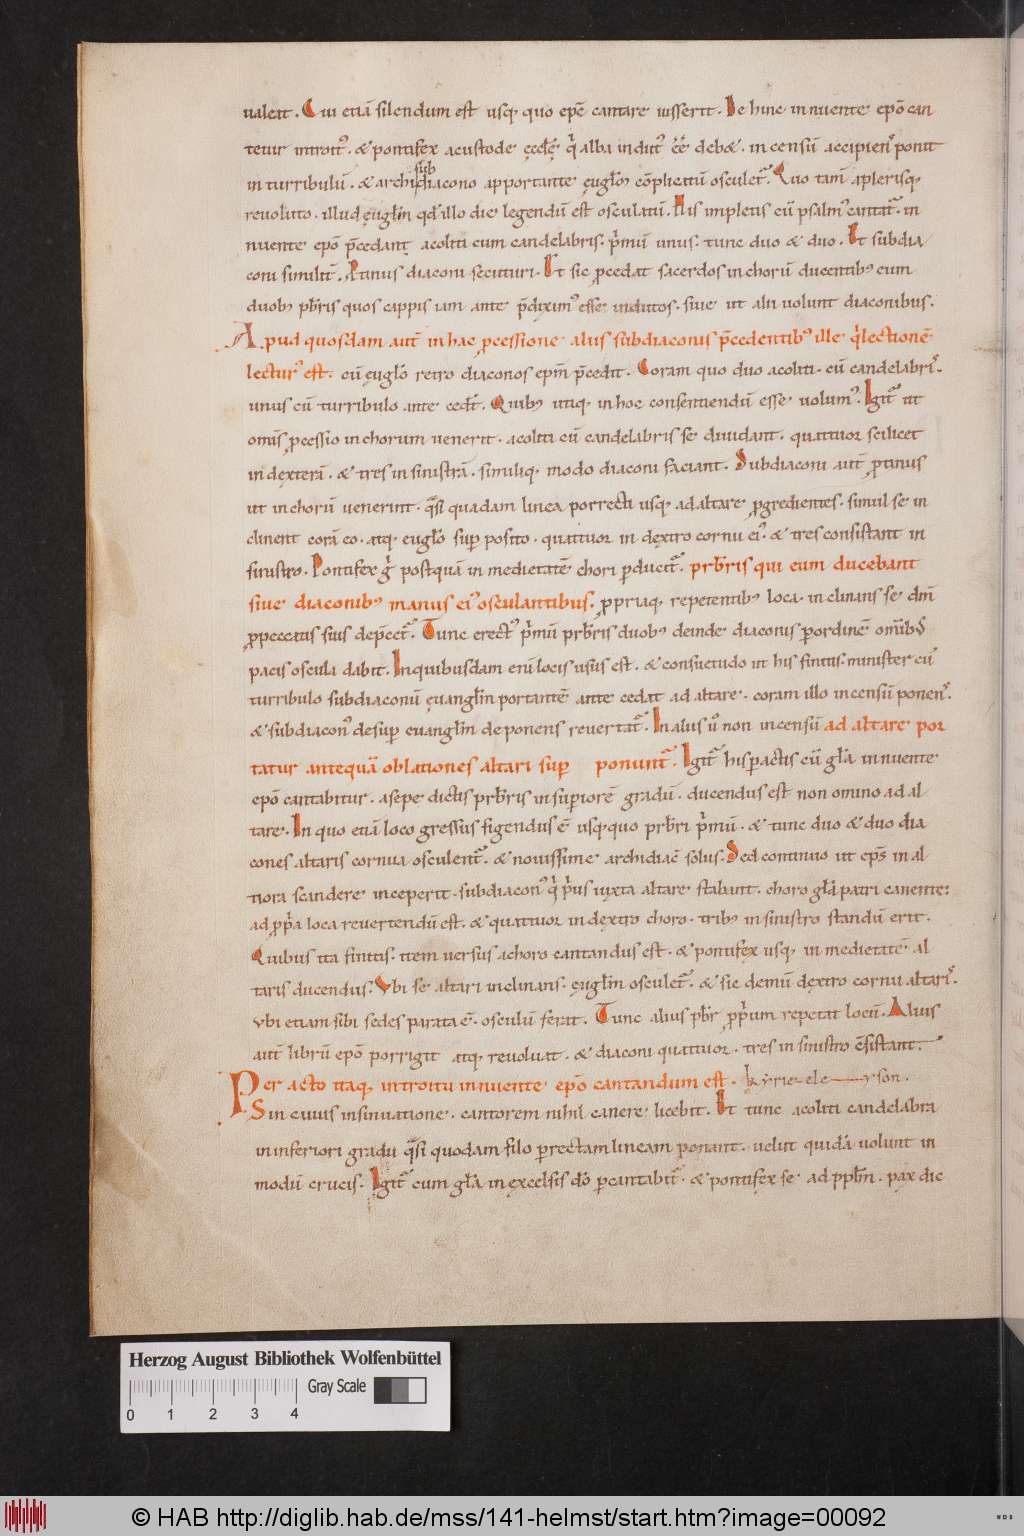 ualeat. Cui etiā silendum est usq; quo epc̄ cantare iusserit. De hinc innuente epō can
tetur introit᷒. & pontifex acustode ęccłę qͥ alba indut᷒ ēē deb&. incensū accipien᷒ ponit
in turribulū. & archi sub diacono apportante ęuglm̄ cōplicatū osculet᷑. Quo tam̄ aplerisq;
reuoluto. illud ęuglm̄ qd̄ illo die legendū est osculatū. His impletis cū psalm᷒ cantat᷑. in
nuente epō p̄cedant acoliti cum candelabris. pͥmū unus. tunc duo & duo. Et subdia
coni similit̄. Ptinus diaconi secuturi. Et sic ꝓcedat sacerdos inchorū ducentib; eum
duob; pb̄ris quos cappis iam ante p̄dixim᷒ esse indutos. siue ut alii uolunt diaconibus.
Apud quosdam aut̄ in hac ꝓcessione alius subdiaconis p̄cedentib; ille qͥ lectionē
lectur᷒ est. cū ęuglō retro diaconos epm̄ p̄cedit. Coram quo duo acoliti. cū candelabri᷒.
unus cū turribulo ante ced&. Quib; utiq; in hoc consentiendū esse uolum᷒. Igit᷑ ut
omīs ꝓcessio inchorum uenerit. acoliti cū candelabris se diuidant. quattuor scilicet
in dęxterā. & tres in sinistrā. similiq; modo diaconi faciant. Subdiaconi aut̄ ꝓtinus
ut in chorū uenerint. q̄si quadam linea porrecti usq; ad altare ꝓgredientes. simul se in
clinent corā eo. atq; euglō sup̄ posito. quattuor in dęxtro cornu ei᷒. & tres consistant in
sinistro. Pontifex gͥ postquā in medietatē chori ꝑducit᷑. prb̄ris qui eum ducebant
siue diaconib; manus ei᷒ osculantibus. ꝓpriaq; repetentib; loca. inclinans se dm̄
ꝓpeccatis suis dep̄cet᷑. Tunc erect᷒ pͥmū prb̄ris duob; deinde diaconis ꝑordinē omīb;
pacis oscula dabit. Inquibusdam eni locis usus est. & consuetudo ut his finitis. minister cū
turribulo subdiaconū ęuanglm̄ portantē ante cedat ad altare. coram illo incensū ponen᷒.
& subdiacon᷒ desup̄ euanglm̄ deponens reuertat᷑. In aliis uͦ non incensū ad altare por
tatur antequā oblationes altari sup̄ ponunt᷑. Igit᷑ his ꝑactis cū glā innuente
epō cantabitur. asepe dictis prb̄ris insup̄iorē gradū. ducendus est non omino ad al
tare. In quo etiā loco gressus figendus ē usq;quo prb̄ri pͥmū. & tunc duo & duo dia
cones altaris cornua osculent᷑. & nouissime archidiac̄ solus. Sed continuo ut ep̄s in al
tiora scandere inceperit. subdiacon᷒ qͥ pͥus iuxta altare stabant. choro glā patri canente:
ad ꝓp̄a loca reuertendū est. & quattuor in dęxtro choro. trib; in sinistro standū erit.
Quibus ita finitis. item uersus achoro cantandus est. & pontifex usq; in medietatē al
taris ducendus. Vbi se altari inclinans. ęuglm̄ osculet᷑. & sic demū dęxtro cornu altari᷒.
Vbi etiam sibi sedes parata ē. osculū ferat. Tunc alius pb̄r ꝓp̄ium repetat locū. Alius
aut̄ librū epō porrigit atq; reuoluat. & diaconi quattuor. tres in sinistro c̄sistant.
Per acto itaq; introitu innuente epō cantandum est. kyrie eleyson.
Sin cuius insinuatione. cantorem nihil canere licebit. Et tunc acoliti candelabra
in inferiori gradu q̄si quodam filo ꝑrectam lineam ponant. uelut quidā uolunt in
modū crucis. Igit᷑ cum glā in excelsis dō ꝑcantabit᷑. & pontifex se ad pp̄lm̄. pax dic
Herzog August Bibliothek Wolfenbüttel
Gray Scale
0 1 2 3 4
© HAB http://diglib.hab.de/mss/141-helmst/start.htm?image=00092